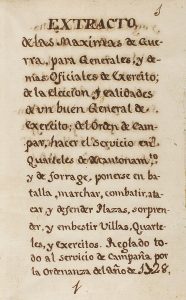 1
EXTRACTO,
de las Maximas de Gue-
rra, para Generales, y de-
mas Oficiales de Exercito;
de la eleccion y calidades
de un buen General de
exercito; del Orden de Cam-
par, hacer el Servicio en
Quarteles de Acantonam.to
y de forrage, ponerse en ba-
talla, marchar, combatir, ata-
car, y defender Plazas, sorpren-
der, y embestir Villas, Quarte-
les, y Exercitos. Reglado to-
do al servicio de Campaña por
la Ordenanza del año de 1728.